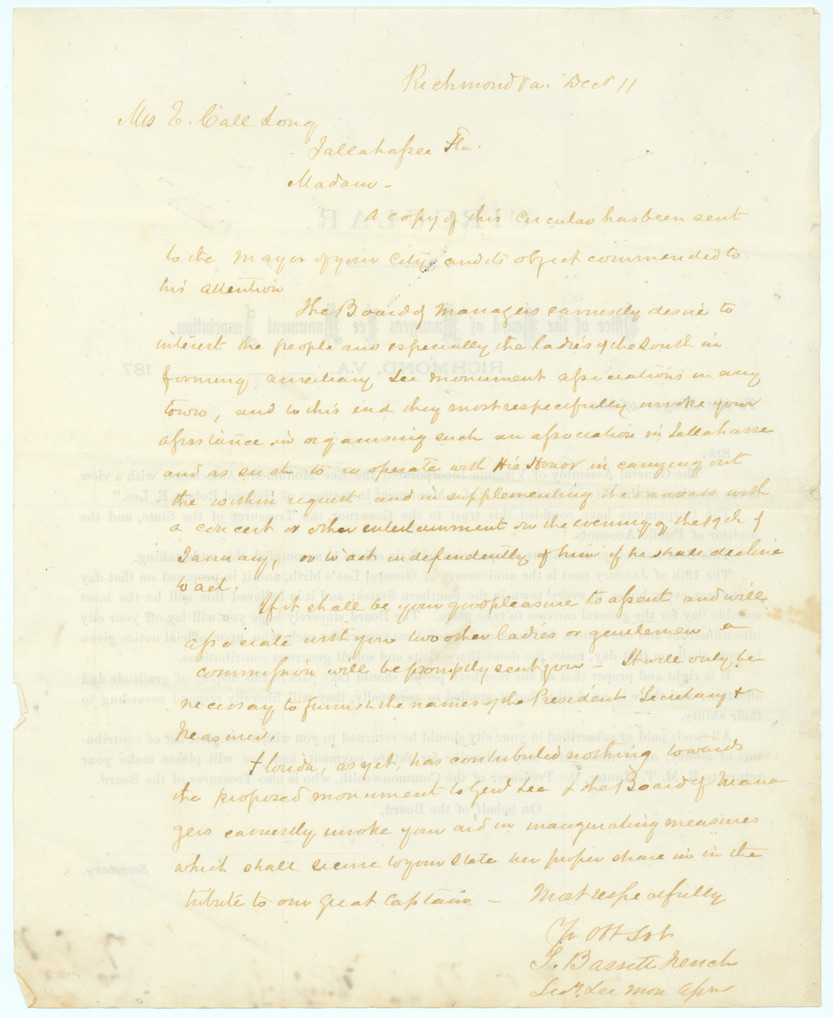 Richmond Va. Dec 11
Mrs E. Call Long
Tallahassee Fla.
Madam -
A copy of this Circular has been sent
to the Mayor of your City and its object commended to
his attention
The Board of Managers earnestly desire to
interest the people and especially the ladies of the South in
forming auxiliary Lee Monument associations in any
town, and to this end they most respectfully invoke your
assistance in organising such an association in Tallahassee
and as such to co operate with His Honor in carrying out
the within request and in supplementing the canvass with
a concert or other entertainment on the evening of the 19th of
January, or to act independently of him if he shall decline
to act.
If it shall be your good pleasure to assent and will
associate with you two other ladies or gentlemen a
commission will be promptly sent you - It will only be
necessary to furnish the names of the President Secretary &
Treasurer.
Florida, as yet, has contributed nothing towards
the proposed monument to Genl Lee & the Board of Mana
gers earnestly invoke your aid in inaugurating measures
which shall secure to your State her proper share in in the
tribute to our Great Captain - Most respectfully
Yr Obt Svt
S. Bassett French
Secy. Lee Mon Assn
CIRCULAR.
Office of the Board of Managers Lee Monument Association,
RICHMOND, VA. 187